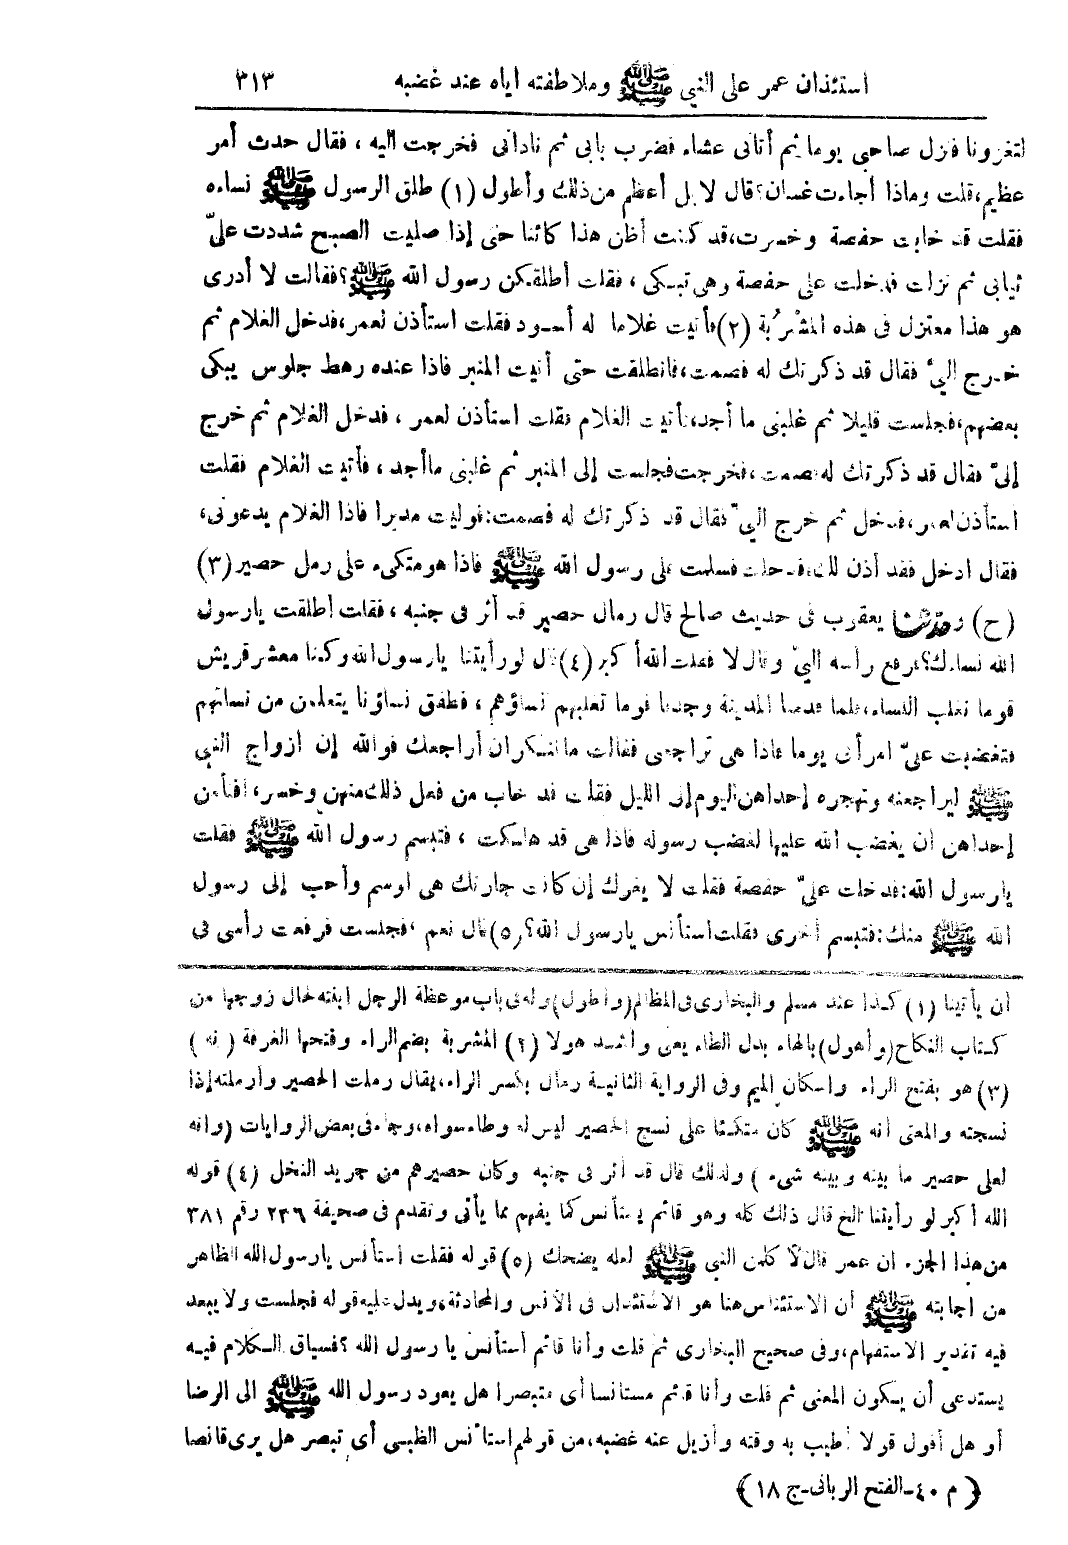 استئذان عمر على النبي ﷺ وملاطفته اياه عند غضبه ٣١٣
لتغزونا فنزل صاحبي يوما ثم أتاني عشاء فضرب بابي ثم ناداني فخرجت اليه ، فقال حدث أمر
عظيم،قلت وماذا أجاءت غسان؟قال لا بل أعظم من ذلك وأطول (١) طلق الرسول ﷺ نساءه
فقلت قد خابت حفصة وخسرت،قد كنت أظن هذا كائنا حتى إذا صليت الصبح شددت علىّ
ثيابي ثم نزلت فدخلت على حفصة وهى تبكى ، فقلت أطلقكن رسول الله ﷺ؟فقالت لا أدرى
هو هذا معتزل فى هذه المشرُبة (٢)فأتيت غلاما له أسود فقلت استأذن لعمر،فدخل الغلام ثم
خرج اليّ فقال قد ذكرتك له فصمت،فانطلقت حتى أتيت المنبر فاذا عنده رهط جلوس يبكى
بعضهم،فجلست قليلا ثم غلبنى ما أجد،فأتيت الغلام فقلت استأذن لعمر ، فدخل الغلام ثم خرج
إلىّ فقال قد ذكرتك له فصمت،فخرجت فجلست إلى المنبر ثم غلبنى ماأجد ، فأتيت الغلام فقلت
استأذن لعمر،فدخل ثم خرج اليّ فقال قد ذكرتك له فصمت:فوليت مدبرا فاذا الغلام يدعونى،
فقال ادخل فقد أذن لك،فدخلت فسلمت على رسول الله ﷺ فاذا هو متكىء على رمل حصير (٣)
(ح) وحدثنا يعقوب فى حديث صالح قال رمال حصير قد أثر فى جنبه ، فقلت أطلقت يارسول
الله نساءك؟فرفع رأسه اليّ وقال لا فقلت الله أكبر (٤)قال لو رأيتنا يارسول الله وكنا معشر قريش
قوما نغلب النساء،فلما قدمنا المدينة وجدنا قوما تغلبهم نساؤهم ، فطفق نساؤنا يتعلمن من نسائهم
فتغضبت علىّ امرأتى يوما فاذا هى تراجعنى فقالت ما تنكر ان أراجعك فوالله إن ازواج النبي
ﷺ ليراجعنه وتهجره إحداهن اليوم إلى الليل فقلت قد خاب من فعل ذلك منهن وخسر، أفتأمن
إحداهن أن يغضب الله عليها لغضب رسوله فاذا هى قد هلكت ، فتبسم رسول الله ﷺ فقلت
يارسول الله:فدخلت علىّ حفصة فقلت لا يغرك إن كانت جارتك هى أوسم وأحب إلى رسول
الله ﷺ منك:فتبسم أخرى فقلت استأنس يارسول الله؟(٥)قال نعم ،فجلست فرفعت رأسى فى
أن يأتينا (١) كذا عند مسلم والبخارى فى المظالم(وأطول)وله فى باب موعظة الرجل ابنته لحال زوجها من
كتاب النكاح(وأهول)بالهاء بدل الطاء يعنى وأشد هولا (٢) المشربة بضم الراء وفتحها الغرفة (نه)
(٣) هو بفتح الراء واسكان الميم وفى الرواية الثانية رمال بكسر الراء،يقال رملت الحصير وأرملته إذا
نسجته والمعنى أنه ﷺ كان متكئا على نسج الحصير ليس له وطاء سواه،وجاء فى بعض الروايات (وانه
لعلى حصير ما بينه وبينه شيء) ولذلك قال قد أثر فى جنبه وكان حصيرهم من جريد النخل (٤) قوله
الله أكبر لو رأيتنا الخ قال ذلك كله وهو قائم يستأنس كما يفهم مما يأتى وتقدم فى صحيفة ٢٣٦ رقم ٣٨١
من هذا الجزء ان عمر قال لأ كلمن النبي ﷺ لعله يضحك (٥) قوله فقلت استأنس يارسول الله الظاهر
من اجابته ﷺ أن الاستئناس هنا هو الاستئذان فى الأنس والمحادثة،ويدل عليه قوله فجلست ولا يبعد
فيه تقدير الاستفهام،وفى صحيح البخارى ثم قلت وأنا قائم أستأنس يا رسول الله ؟فسياق الكلام فيه
يستدعى أن يكون المعنى ثم قلت وأنا قائم مستأنسا أى متبصرا هل يعود رسول الله ﷺ الى الرضا
أو هل أقول قولا أطيب به وقته وأزيل عنه غضبه،من قولهم استأنس الظبى أى تبصر هل يرى قانصا
﴿ م ٤٠ــالفتح الربانى-ج ١٨ ﴾